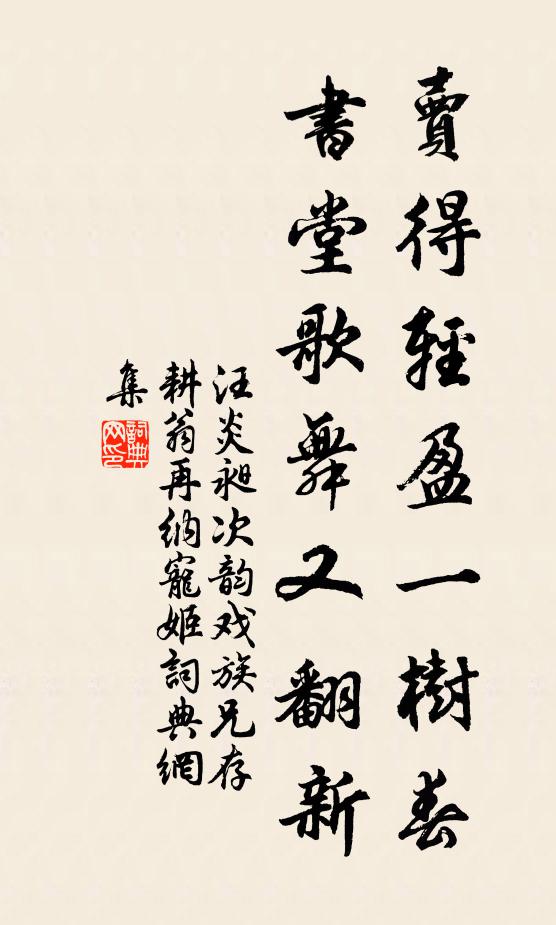 賣得輕盈一樹春
書堂歌舞又翻新
汪炎昶次韵戏族兄存
耕翁再納寵姬詞典網
集
詞典
网印